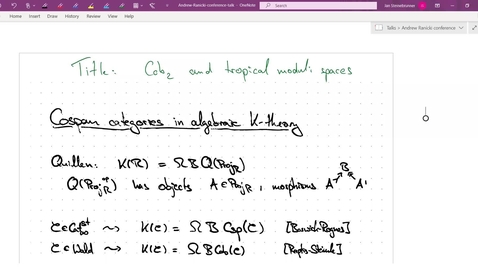 Andrew Ranicki conference talk - OneNote
Search
Jan Steinebrunner
Home Insert Draw History Review View Help
Talks > Andrew Ranicki conference
Title: Cob₂ and tropical moduli spaces
Cospan categories in algebraic K-theory
B
Quillen: K(R) = ΩBQ(Proj_R)
Q(Proj_R^op) has objects A ∈ Proj_R, morphisms A → B ← A'
K(C) = ΩB Csp(C) [Barwick-Rognes]
C ∈ Wald ⇝ K(C) = ΩB Cob(C) [Raptis-Steimle]